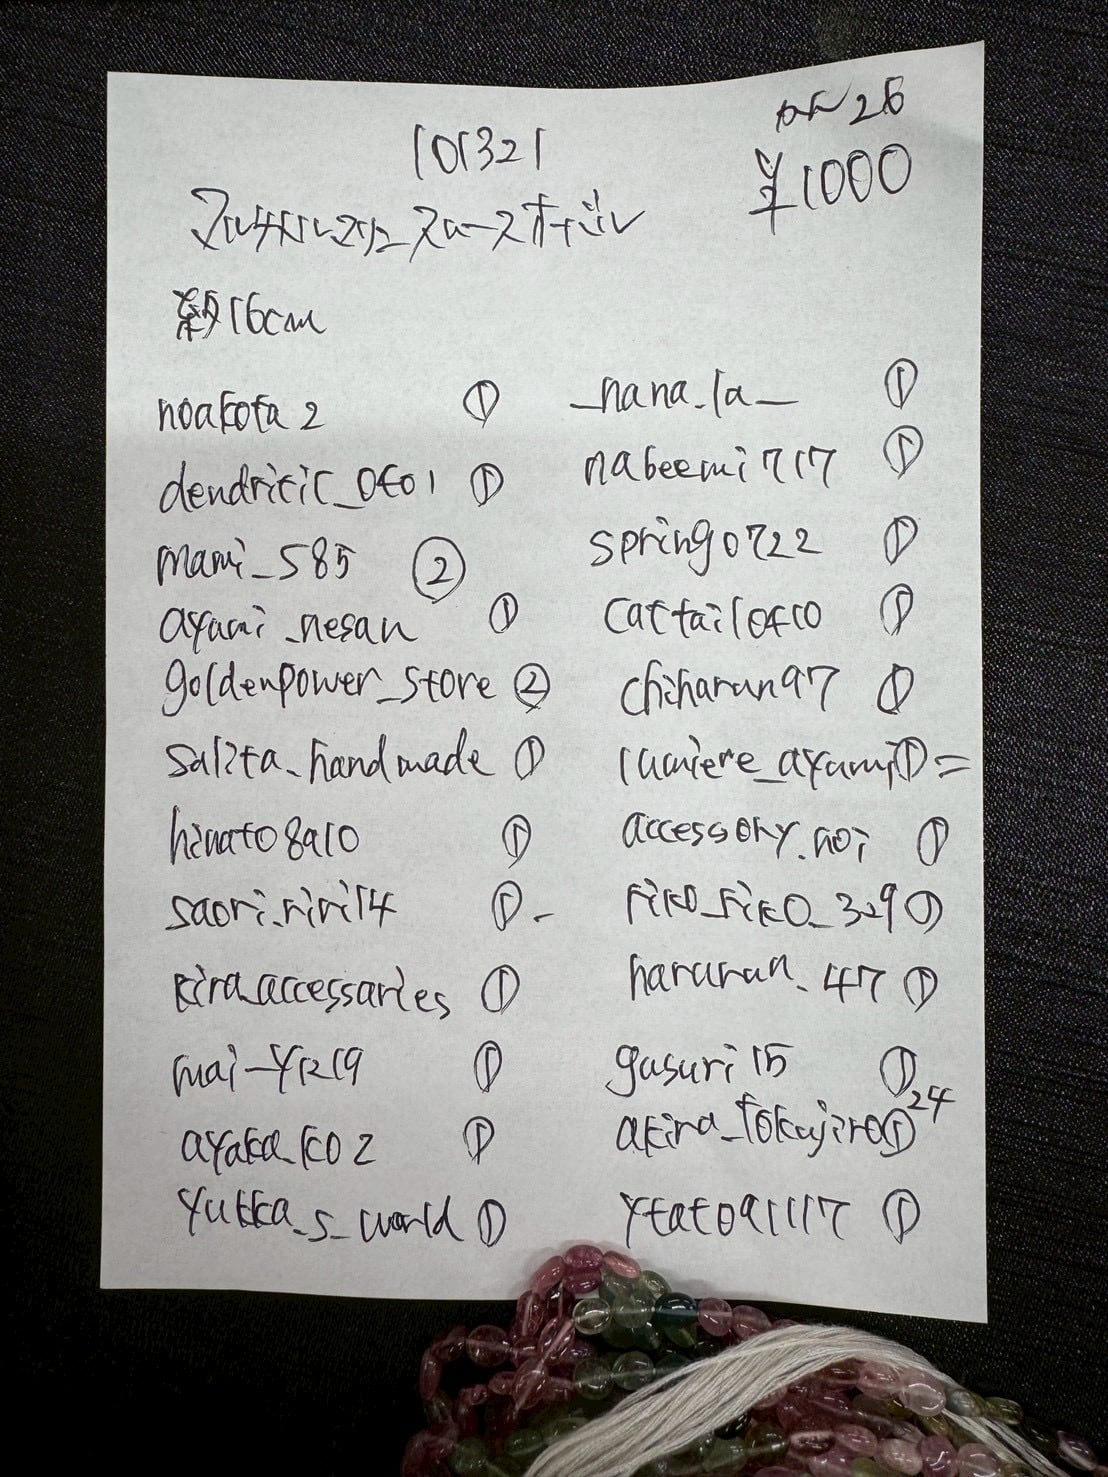 101321
¥1000
マルチトルマリン スムースオーバル
約16cm
noakota2 ①
dendritic_0401 ①
mami_585 ②
ayumi_nesan ①
goldenpower_store ②
salita_handmade ①
hinato8910 ①
saori.riri14 ①-
kira_accessaries ①
mai-y1219 ①
ayaka_k02 ①
yukka_s_world ①
_nana.la_ ①
nabeemi717 ①
spring0722 ①
cattail0410 ①
chiharun97 ①
lumiere_ayumi ① =
accessory.noi ①
riko_riko_329 ①
harurun.47 ①
gusuri15 ①
akira_tokujiro ①
24
ytato91117 ①